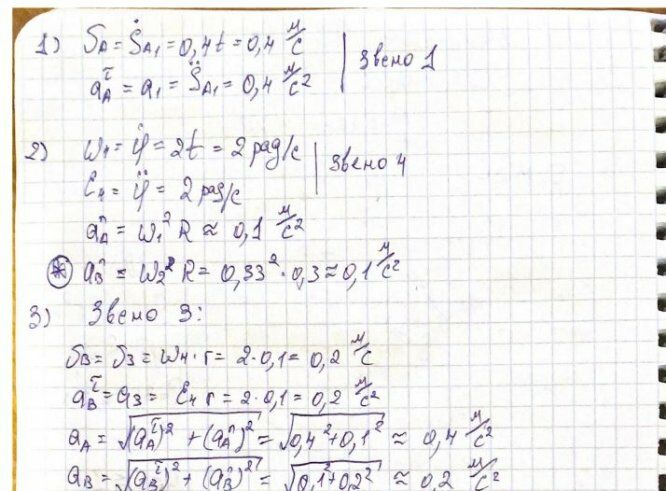 1) υA = ṠA1 = 0,4t = 0,4 м/с
aAτ = a1 = S̈A1 = 0,4 м/с² | Звено 1
2) ω4 = φ̇ = 2t = 2 рад/с
ε4 = φ̈ = 2 рад/с | Звено 4
aAn = ω1² R ≈ 0,1 м/с²
⊛ aBn = ω2² R = 0,33² · 0,3 ≈ 0,1 м/с²
3) Звено 3:
υB = υ3 = ω4 · r = 2 · 0,1 = 0,2 м/с
aBτ = a3 = ε4 r = 2 · 0,1 = 0,2 м/с²
aA = √(aAτ)² + (aAn)² = √0,4² + 0,1² ≈ 0,4 м/с²
aB = √(aBτ)² + (aBn)² = √0,1² + 0,2² ≈ 0,2 м/с²